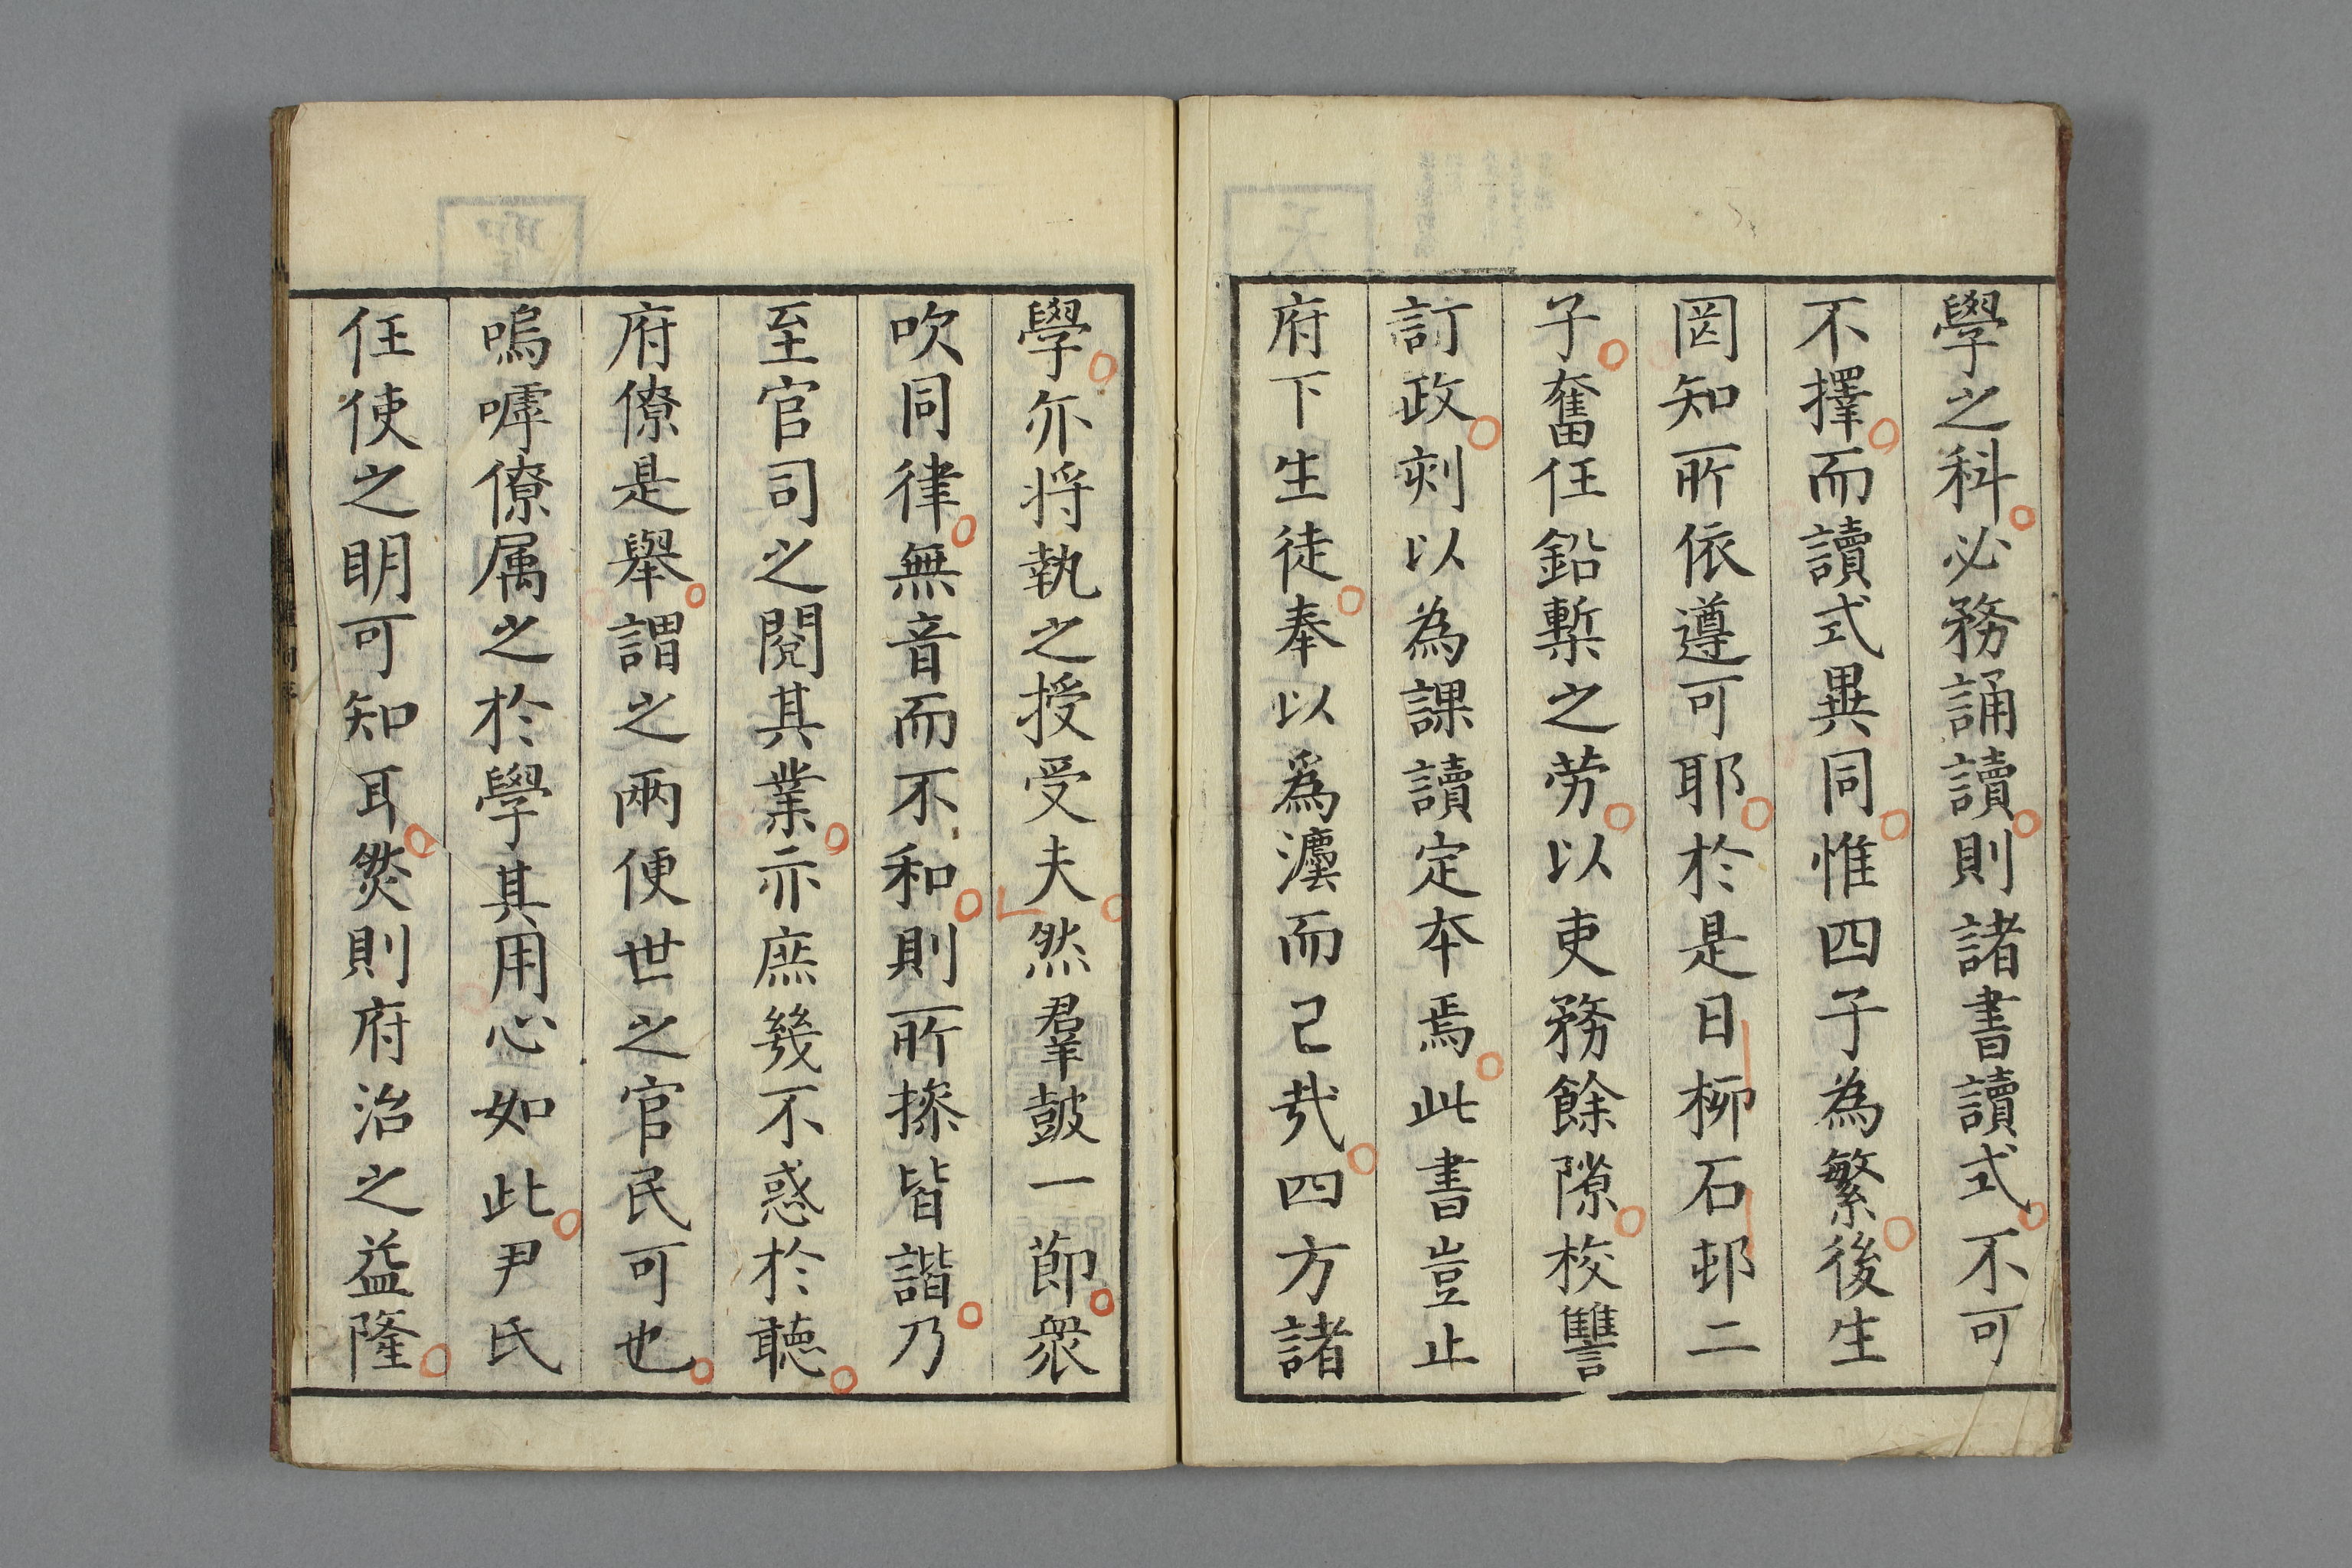 學之科必務誦讀則諸書讀式不可
不擇而讀式異同惟四子為繁後生
罔知所依遵可耶於是日柳石邨二
子奮任鉛槧之労以吏務餘隙校讐
訂政刻以為課讀定本焉此書豈止
府下生徒奉以爲灋而已哉四方諸
學亦将執之授受夫然羣鼓一節衆
吹同律無音而不和則所操皆諧乃
至官司之閱其業亦庶幾不惑於聴
府僚是舉謂之兩便世之官民可也
嗚嘑僚属之於學其用心如此尹氏
任使之明可知耳然則府治之益隆